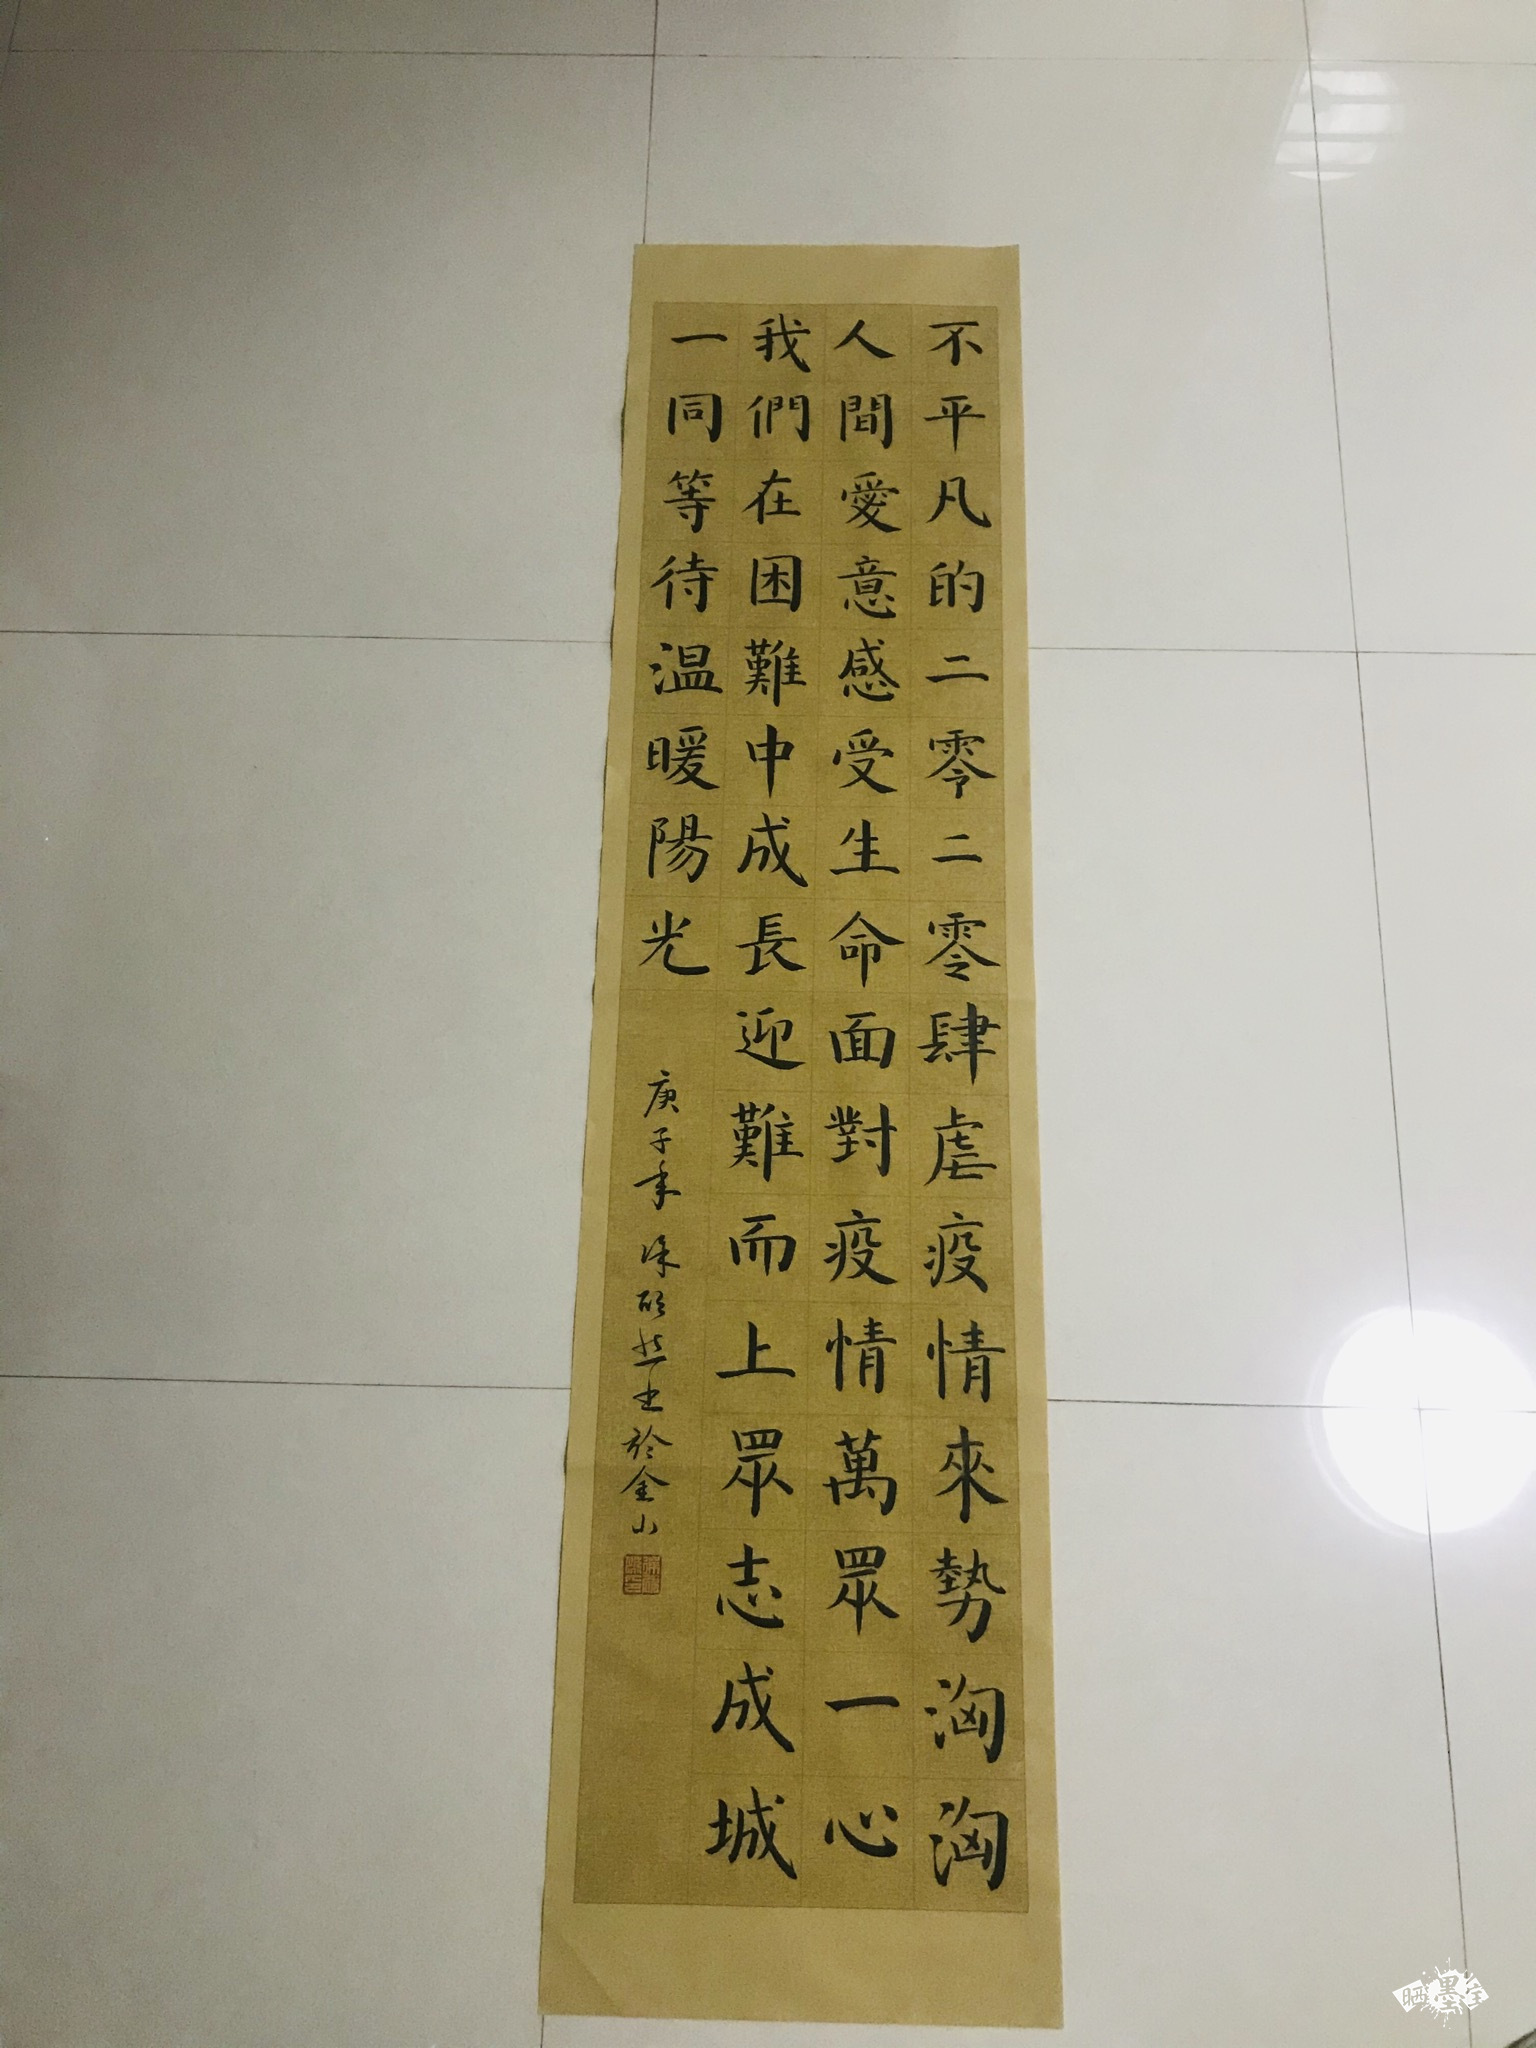 不平凡的二零二零肆虐疫情來勢洶洶
人間愛意感受生命面對疫情萬眾一心
我們在困難中成長迎難而上眾志成城
一同等待温暖陽光
庚子年 碩然書於金山
晒墨宝